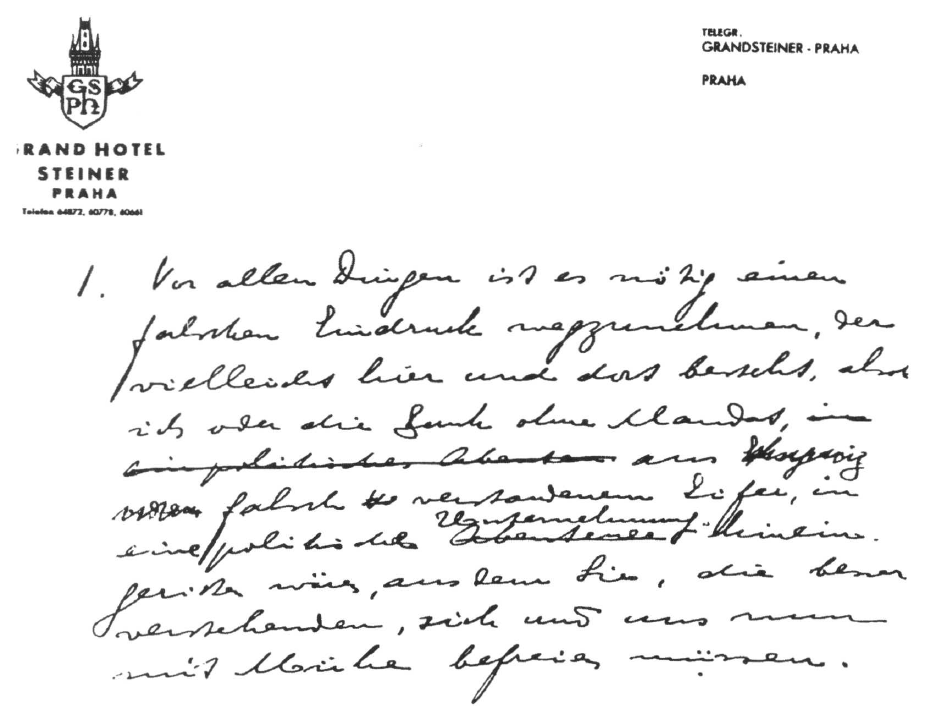 GS
PH
RAND HOTEL
STEINER
PRAHA
Telefon 64872, 60778, 60661
TELEGR.
GRANDSTEINER - PRAHA
PRAHA
1. Vor allen Dingen ist es nötig einen
falschen Eindruck wegzunehmen, der
vielleicht hier und dort besteht, als ob
ich oder die Bank ohne Mandat, in
ein politisches Abenteuer aus
falsch verstandenem Eifer, in
eine politische Unternehmung Abenteuer hinein
geritten wären, aus dem Sie, die besser
verstehenden, sich und uns nun
mit Mühe befreien müssen.